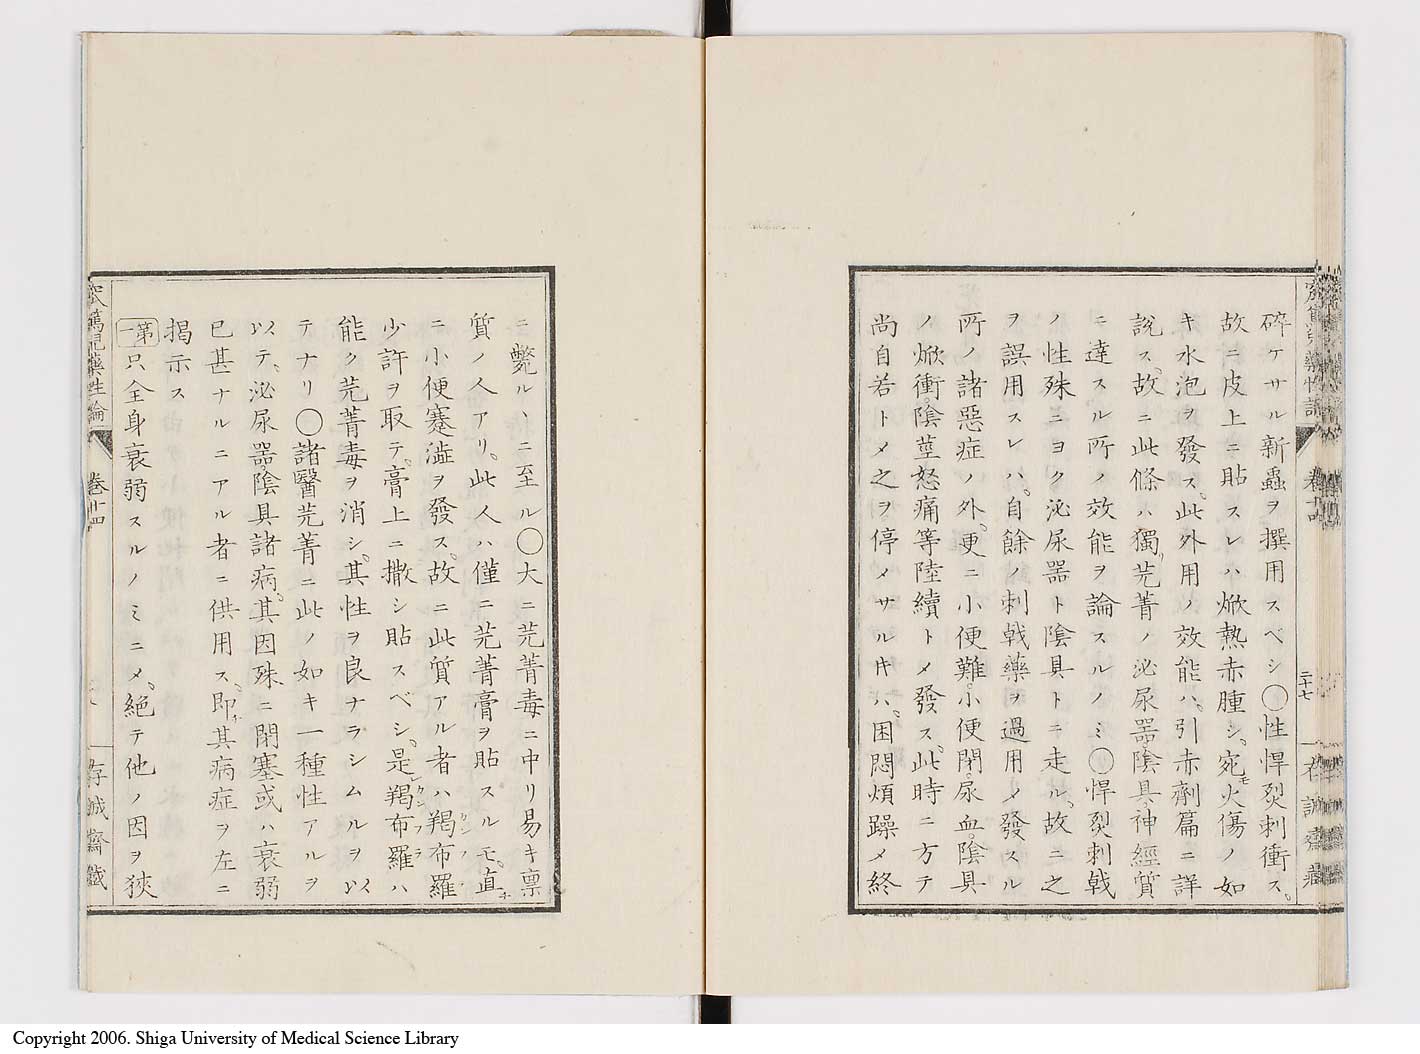 碎ケサル新蟲ヲ撰用スベシ○性悍烈刺衝ス。
故ニ皮上ニ貼スレハ焮熱赤腫シ、宛モ火傷ノ如
キ水泡ヲ發ス。此外用ノ效能ハ、引赤劑篇ニ詳
説ス。故ニ此條ハ獨リ芫菁ノ泌尿器陰具神經質
ニ達スル所ノ效能ヲ論スルノミ○悍烈刺戟
ノ性殊ニヨク泌尿器ト陰具トニ走ル。故ニ之
ヲ誤用スレハ、自餘ノ刺戟藥ヲ過用メ發スル
所ノ諸惡症ノ外、更ニ小便難。小便閉。尿血。陰具
ノ焮衝。陰莖怒痛等陸續トメ發ス。此時ニ方テ
尚自若トメ之ヲ停メサル𪜈ハ、困悶煩躁メ終
卷十四
二十七
ニ斃ルヽニ至ル○大ニ芫菁毒ニ中リ易キ稟
質ノ人アリ。此人ハ僅ニ芫菁膏ヲ貼スルモ、直ニ
ニ小便蹇澁ヲ發ス。故ニ此質アル者ハ羯布羅
少許ヲ取テ、膏上ニ撒シ貼スベシ。是レ羯布羅ハ
能ク芫菁毒ヲ消シ、其性ヲ良ナラシムルヲ以
テナリ○諸醫芫菁ニ此ノ如キ一種性アルヲ
以テ、泌尿器陰具諸病。其因殊ニ閉塞或ハ衰弱
已甚ナルニアル者ニ供用ス、即チ其病症ヲ左ニ
掲示ス
第一 只全身衰弱スルノミニメ、絶テ他ノ因ヲ狹
窊篤児藥性論
卷十四
存誠齋藏
Copyright 2006. Shiga University of Medical Science Library